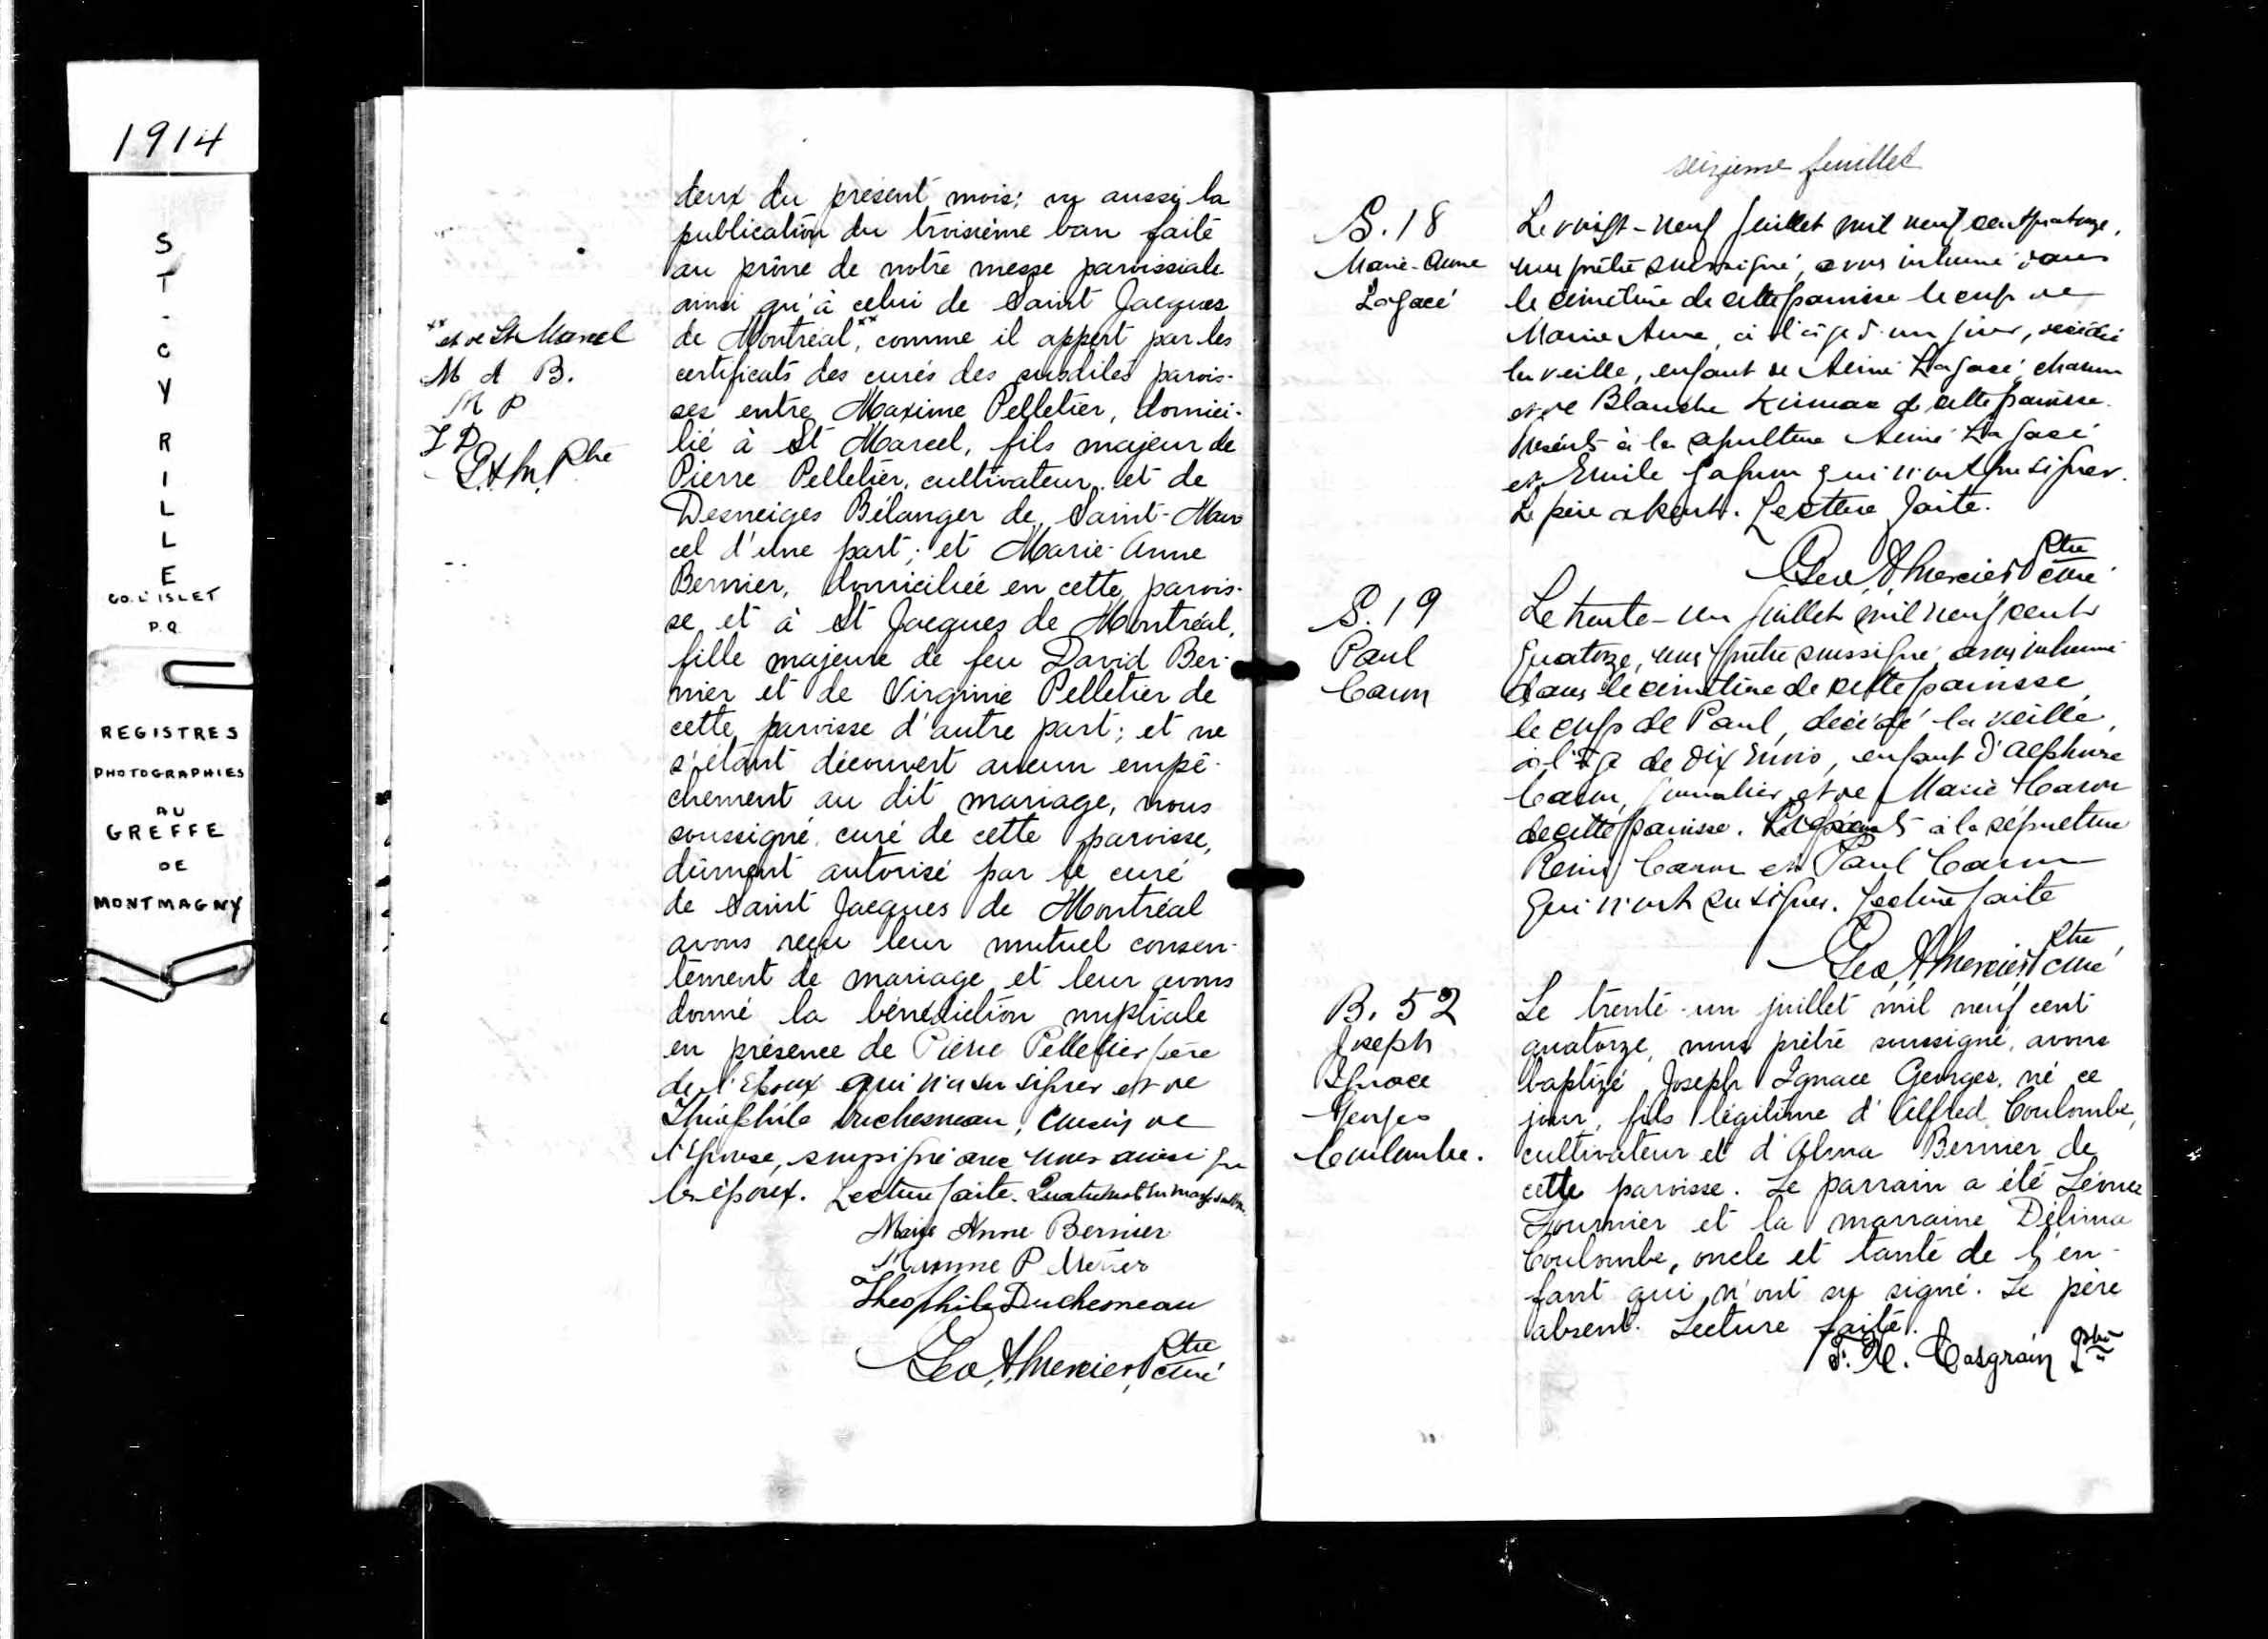 1914
ST-CYRILLE
CO. L'ISLET
P.Q.
REGISTRES
PHOTOGRAPHIES
AU
GREFFE
DE
MONTMAGNY
** et de St Marcel
M A B.
M P
T D
G.A.M. Ptre
deux du présent mois; vu aussi la
publication du troisième ban faite
au prône de notre messe paroissiale
ainsi qu'à celui de Saint Jacques
de Montréal,** comme il appert par les
certificats des curés des susdites parois-
ses entre Maxime Pelletier, domici-
lié à St Marcel, fils majeur de
Pierre Pelletier, cultivateur et de
Desneiges Bélanger de Saint-Mar
cel d'une part; et Marie-Anne
Bernier, domiciliée en cette parois-
se et à St Jacques de Montréal,
fille majeure de feu David Ber-
nier et de Virginie Pelletier de
cette paroisse d'autre part; et ne
s'étant découvert aucun empê-
chement au dit mariage, nous
soussigné, curé de cette paroisse,
dûment autorisé par le curé
de Saint Jacques de Montréal
avons reçu leur mutuel consen-
tement de mariage et leur avons
donné la bénédiction nuptiale
en présence de Pierre Pelletier père
de l'époux qui n'a su signer et de
Théophile Duchesneau, cousin de
l'épouse, soussigné avec nous ainsi que
les époux. Lecture faite. Quatre mots en marge
Marie Anne Bernier
P
Theophile Duchesneau
Geo. A. Mercier Ptre
curé
seizieme feuillet
S. 18
Marie-Anne
Lagacé
Le vingt-neuf juillet mil neuf cent quatorze,
nous prêtre soussigné, avons inhumé dans
le cimetière de cette paroisse le corps de
Marie Anne, à l'âge d'un jour, décédée
la veille, enfant de Aimé Lagacé,
et de Blanche de cette paroisse.
Présents à la sépulture Aimé Lagacé
et Emile qui n'ont pu signer.
Le père absent. Lecture faite.
Geo. A. Mercier Ptre
curé
S. 19
Paul
Caron
Le trente-un juillet mil neuf cent
quatorze, nous prêtre soussigné, avons inhumé
dans le cimetière de cette paroisse,
le corps de Paul, décédé la veille,
à l'âge de dix mois, enfant d'Alphonse
Caron, journalier, et de Marie Caron
de cette paroisse. présents à la sépulture
Rémi Caron et Paul Caron
qui n'ont su signer. Lecture faite
Geo. A. Mercier Ptre
curé
B. 52
Joseph
Ignace
Georges
Coulombe.
Le trente-un juillet mil neuf cent
quatorze, nous prêtre soussigné, avons
baptizé Joseph Ignace Georges, né ce
jour, fils légitime d'Alfred Coulombe,
cultivateur et d'Alma Bernier de
cette paroisse. Le parrain a été
Fournier et la marraine Délima
Coulombe, oncle et tante de l'en-
fant qui n'ont su signé. Le père
absent. Lecture faite.
Casgrain Ptre